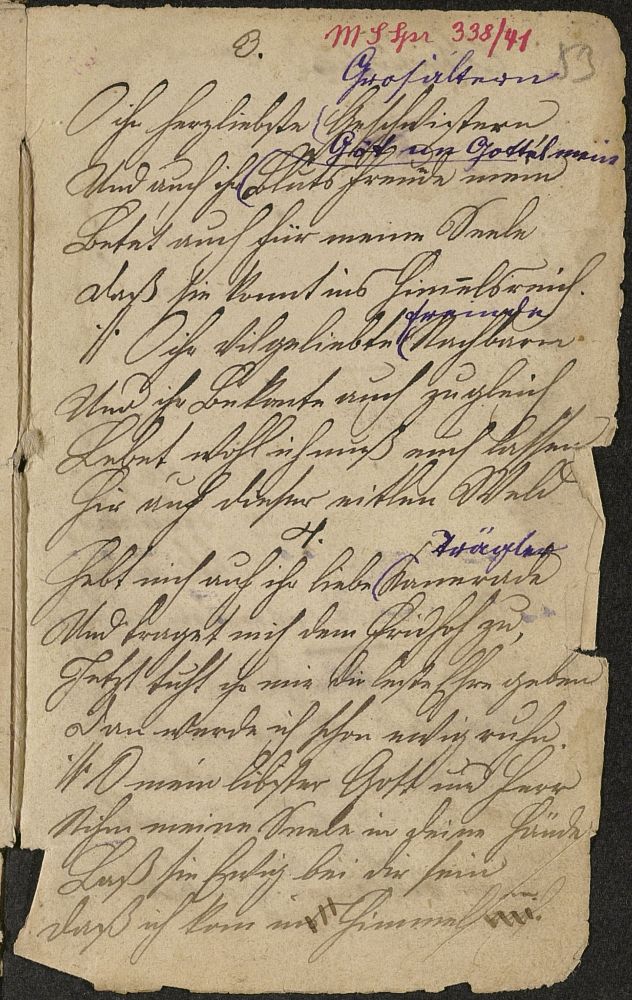 3.
M S Spr 338/41
53
Grosältern
O ihr herzliebste (Geschwistern
Göt un Gottel mein
Und auch ihr (Bluts freunde mein
Betet auch für meine Seele
daß sie komt ins Himmelsreich.
freunde
//: O ihr vilgeliebte (Nachbarn
Und ihr Bekante auch zugleich
Lebet wohl ich muß euch lassen
hir auf dieser eitlen Weld
4.
Trägler
Hebt mich auf ihr liebe (Kamerade
Und traget mich dem Fridhof zu,
Jetzt tuht ihr mir die leste Ehre geben
Dan werde ich schon ewig ruhn.
//: O mein libster Gott und Herr
Nihm meine Seele in deine Hände
Laß sie Ewig bei dir sein
daß ich kom in Himmel ein.